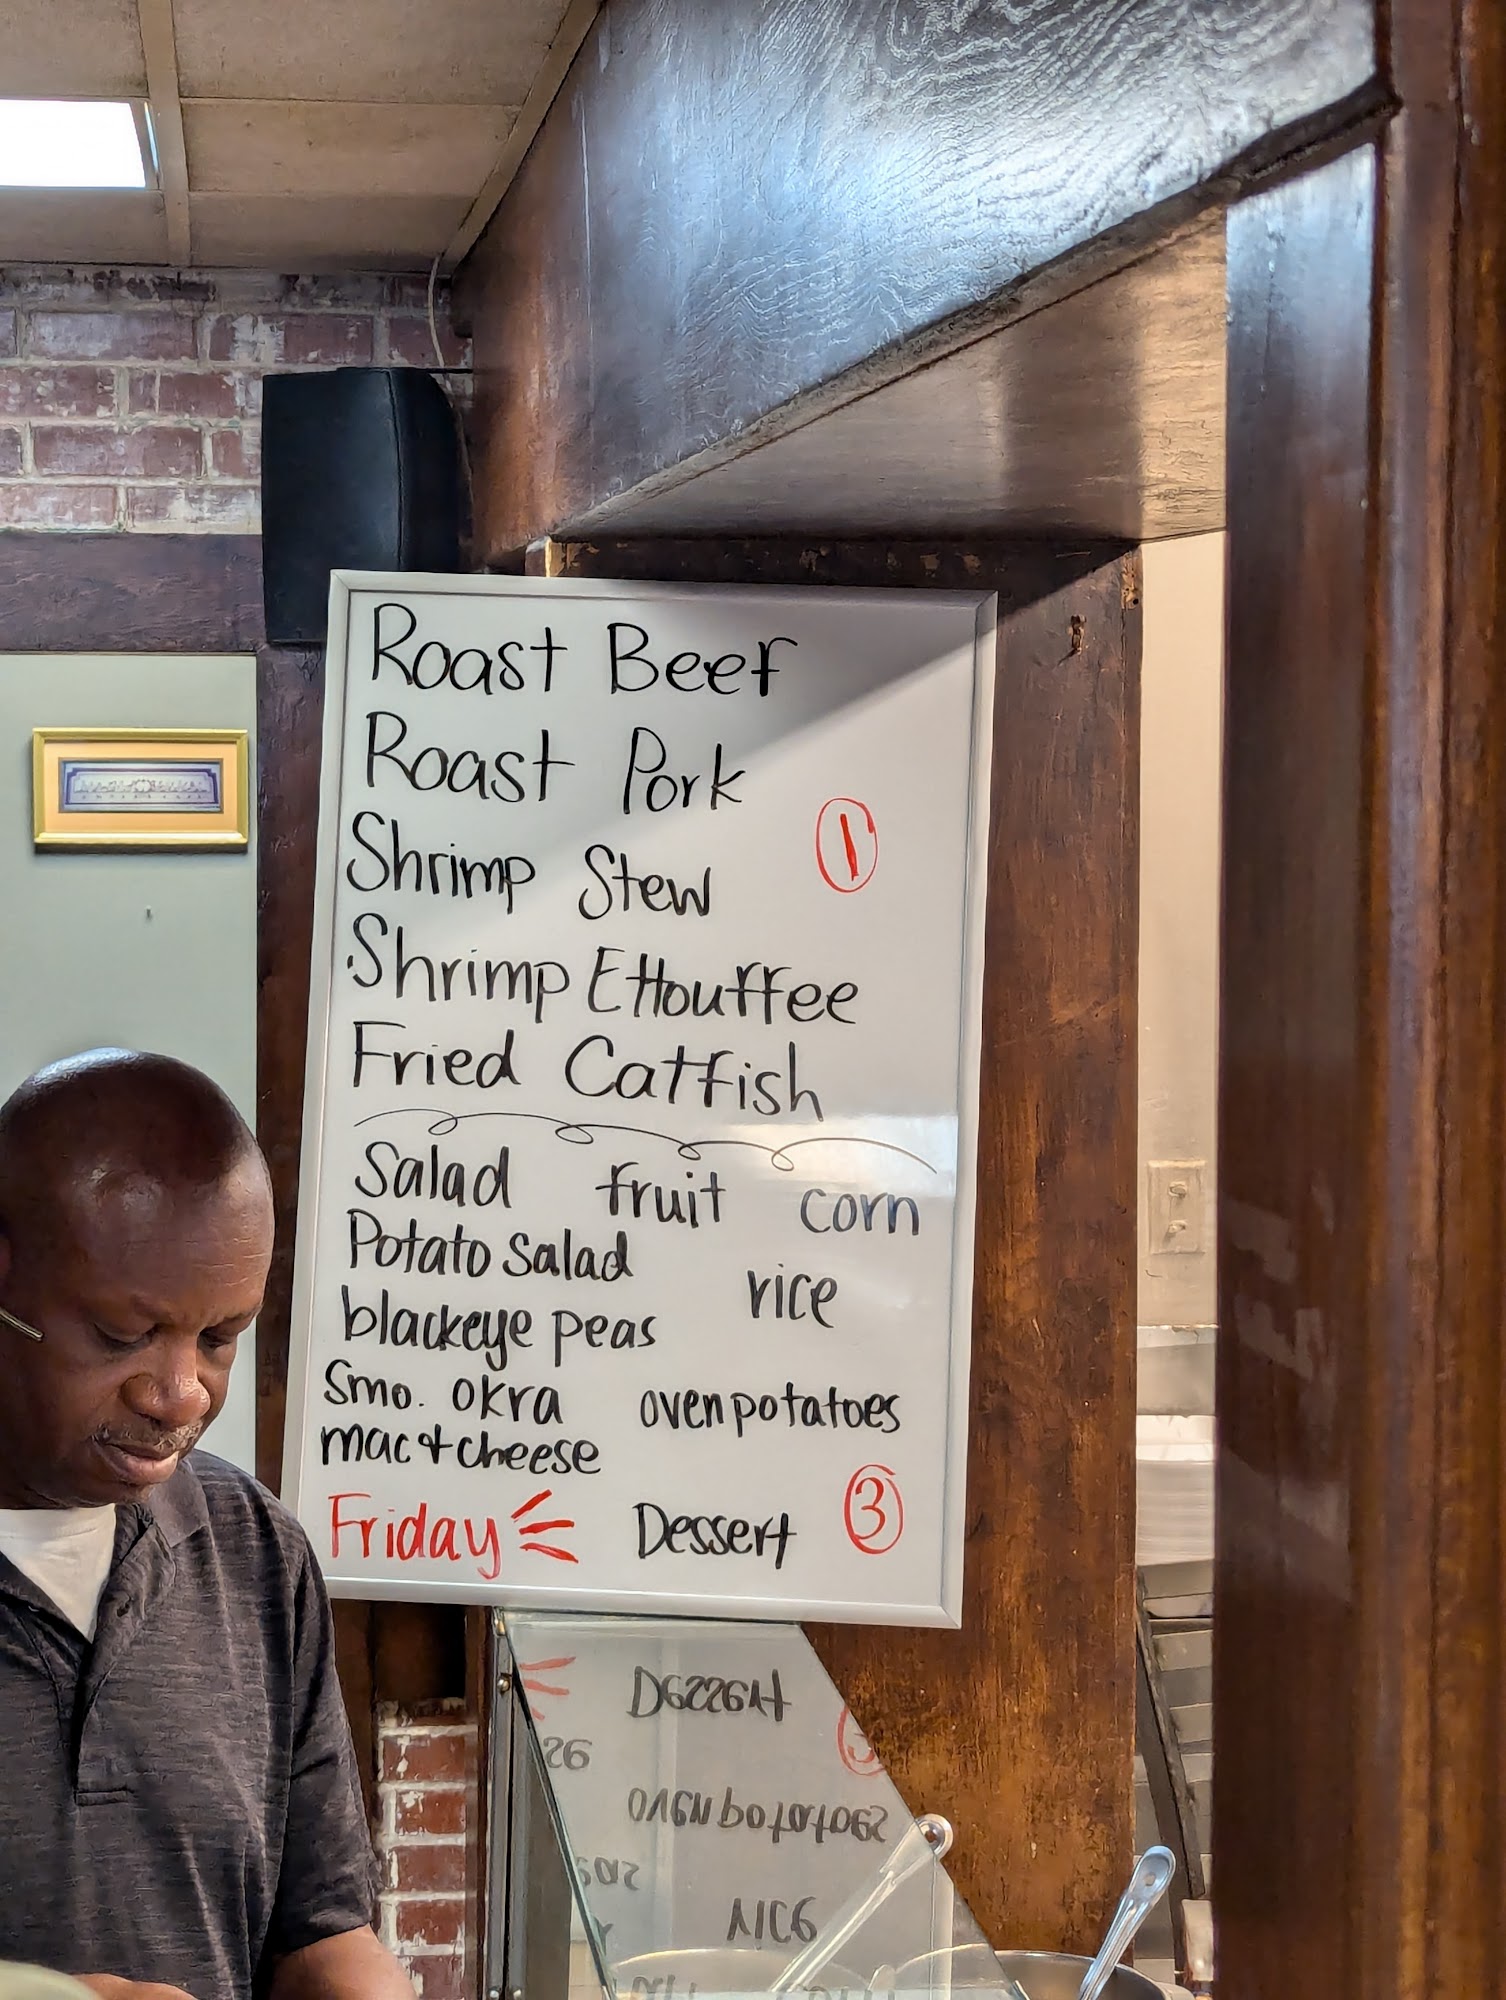 Roast Beef
Roast Pork
Shrimp Stew ①
Shrimp Ettouffee
Fried Catfish
Salad fruit corn
Potato Salad
rice
blackeye peas
Smo. okra ovenpotatoes
mac + cheese
Friday Dessert ③
Dessert
3
se
oven potatoes
eas
rice